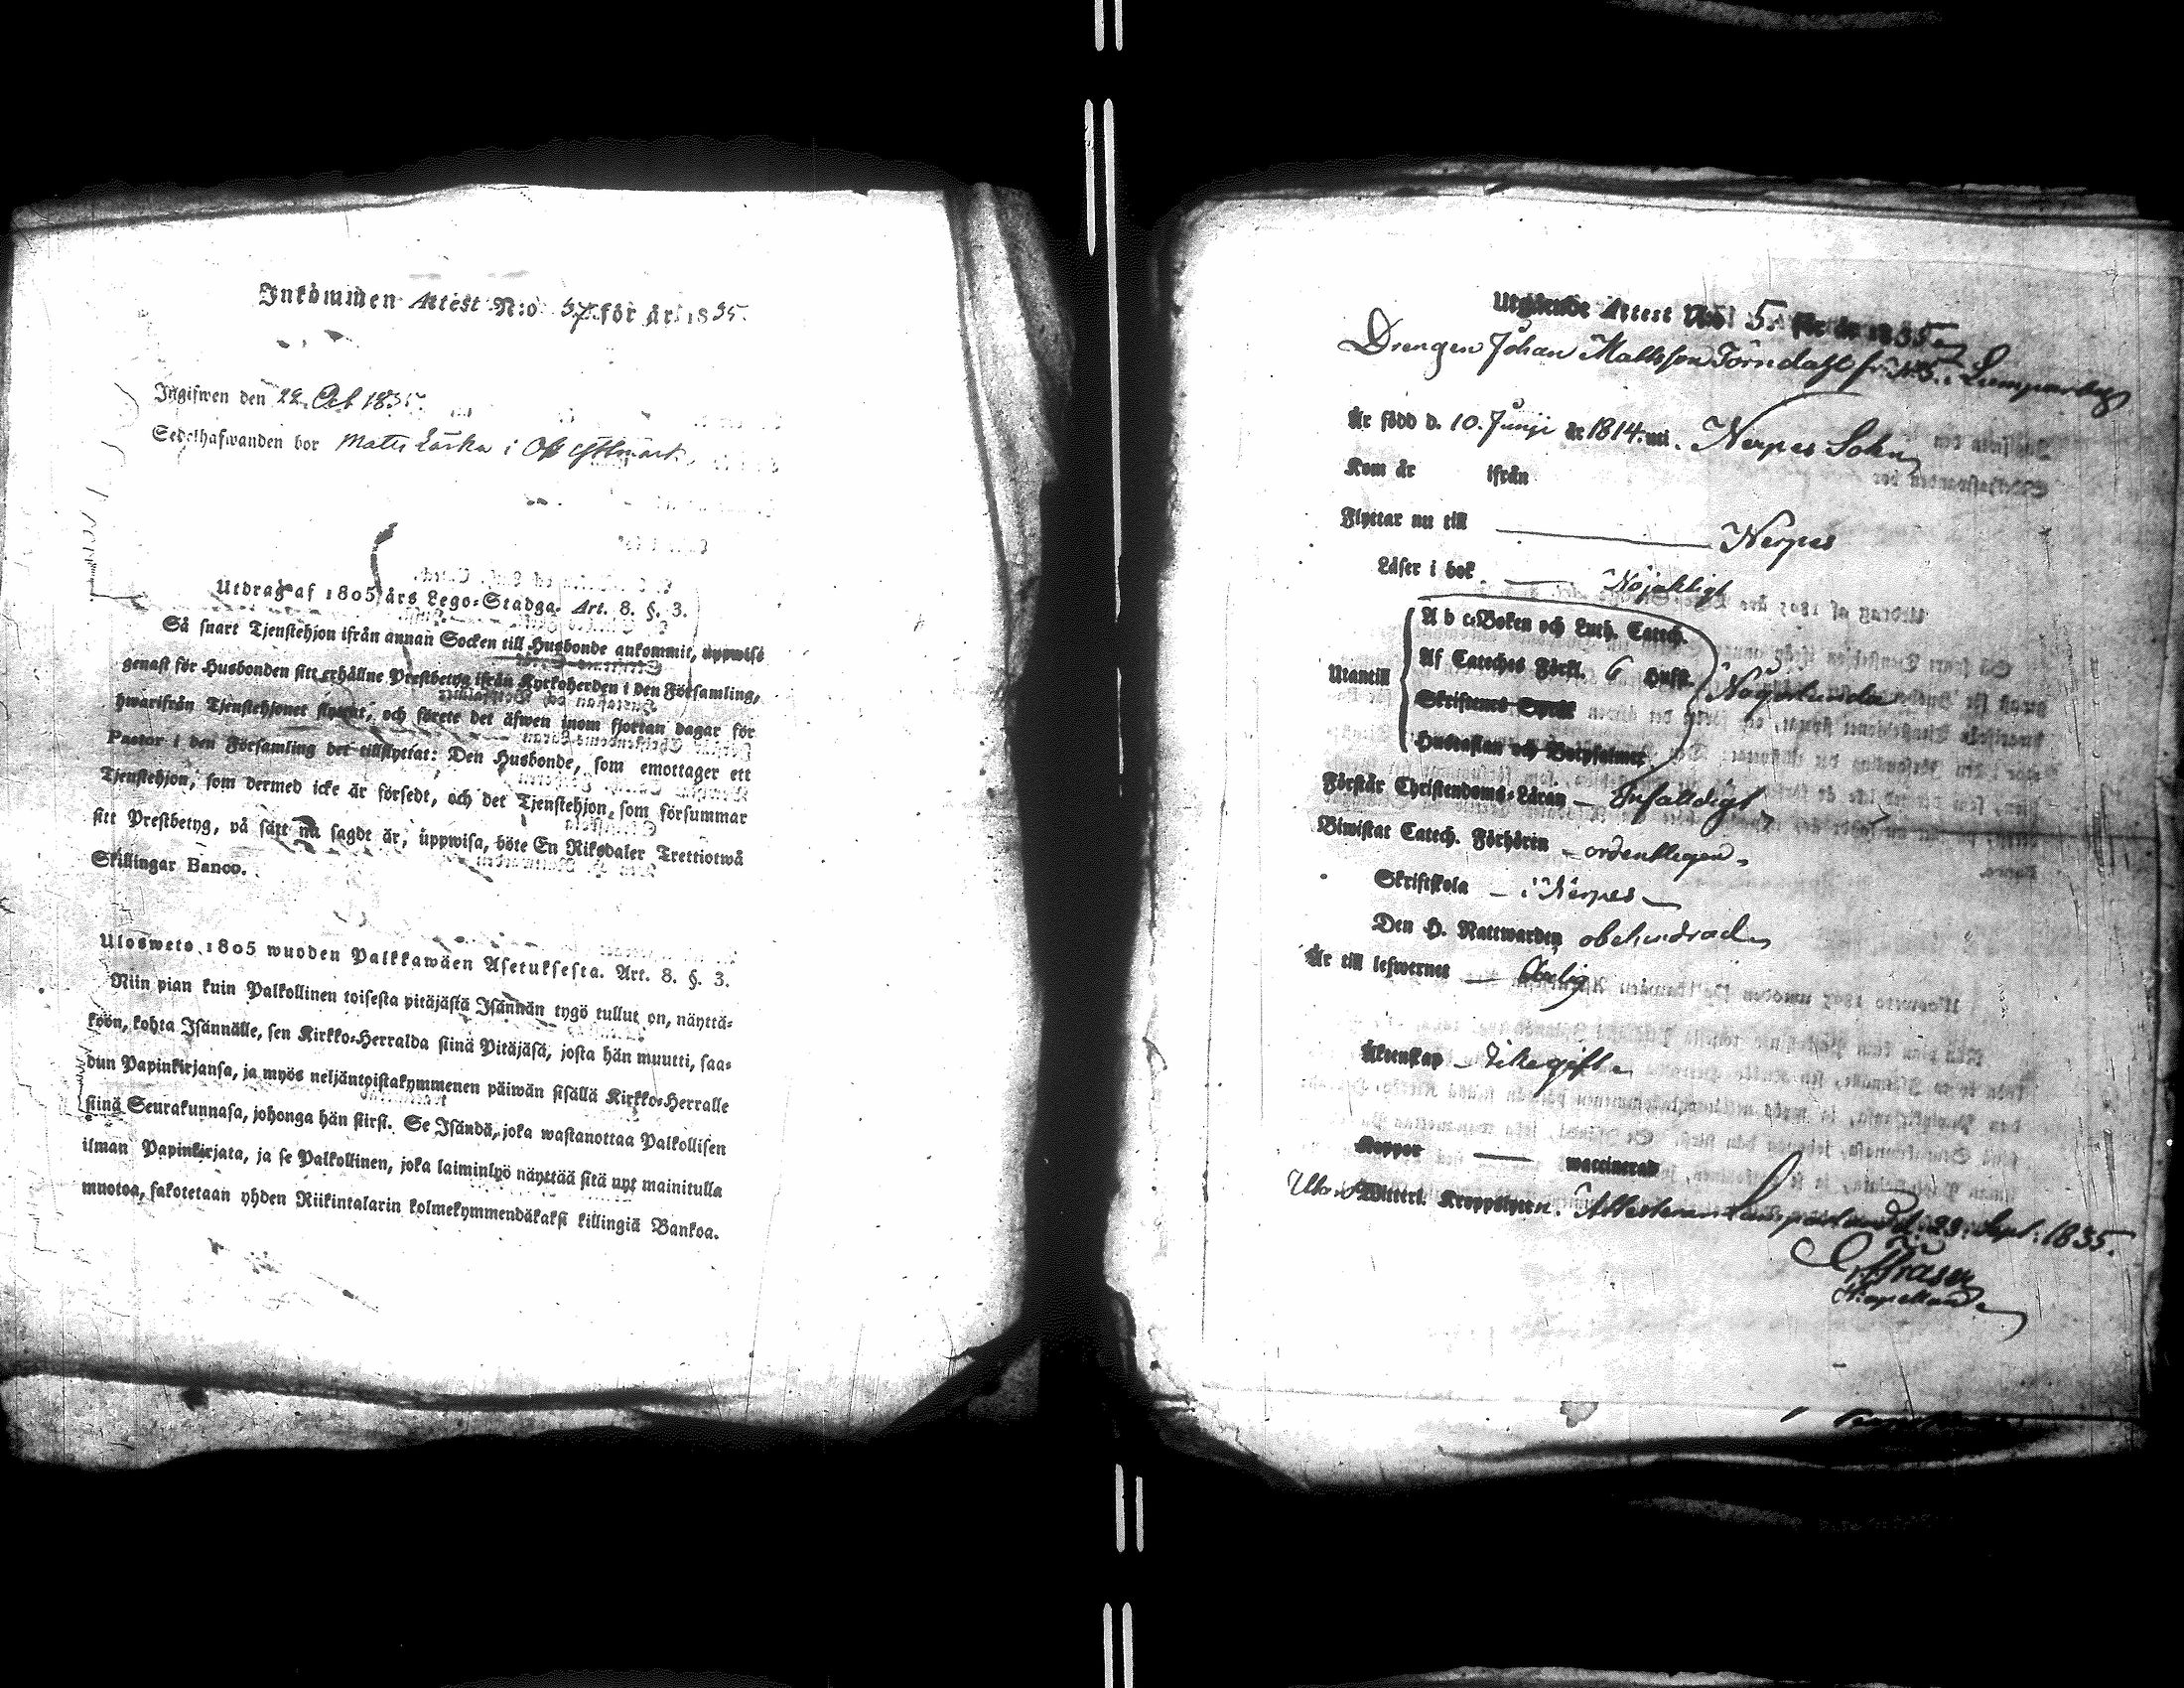 Inkommen Attest N:o 57. för år 1835.
Ingifwen den 22 Oct 1835.
Sedelhafwanden bor Matts i
Utdrag af 1805 års Lego-Stadga. Art. 8. §. 3.
Så snart Tjenstehjon ifrån annan Socken till Husbonde ankommit, uppwise
genast för Husbonden sitt erhållne Prestbetyg ifrån Kyrkoherden i den Församling,
hwarifrån Tjenstehjonet flyttat, och förete det äfwen inom fjortan dagar för
Pastor i den Församling det tillflyttat: Den Husbonde, som emottager ett
Tjenstehjon, som dermed icke är försedt, och det Tjenstehjon, som försummar
sitt Prestbetyg, på sätt nu sagdt är, uppwisa, böte En Riksdaler Trettiotwå
Skillingar Banco.
Uloswets 1805 wuoden Palkkawäen Asetuksesta. Art. 8. §. 3.
Niin pian kuin Palkollinen toisesta pitäjästä Isännän tygö tullut on, näyttä-
köön, kohta Isännälle, sen Kirkko-Herralda siinä Pitäjäsä, josta hän muutti, saa-
dun Papinkirjansa, ja myös neljäntoistakymmenen päiwän sisällä Kirkko-Herralle
siinä Seurakunnasa, johonga hän siirsi. Se Isändä, joka wastanottaa Palkollisen
ilman Papinkirjata, ja se Palkollinen, joka laiminlyö näyttää sitä nyt mainitulla
muotoa, sakotetaan yhden Riikintalarin kolmekymmendäkaksi killingiä Bankoa.
Utgående Attest N:o 5. för år 1835
Drengen Johan Mattsson Törndahl fr. N:o 5. i Lumparby
Är född d. 10. Junji år 1814. uti. Nerpes Sokn
Kom år ifrån
Flyttar nu till Nerpes
Läser i bok Nöjaktigt
A b c-Boken och Luth. Catech.
Af Cateches Förkl. 6 Hufst.
Utantill Någorlunda
Skriftenes Språk
Hustaflan och Botpsalmer
Förstår Christendoms-Läran – Enfaldigt
Biwistat Catech. Förhören – ordentligen
Skriftskola – i Nerpes
Den H. Nattwarden obehindrad
Är till lefwernet Ärlig
Äktenskap Ickegift
Koppor waccinerad
Utan Witterl. Kroppslyten. Attesteras Lumparland d: 29: Sept: 1835.
Kapellan